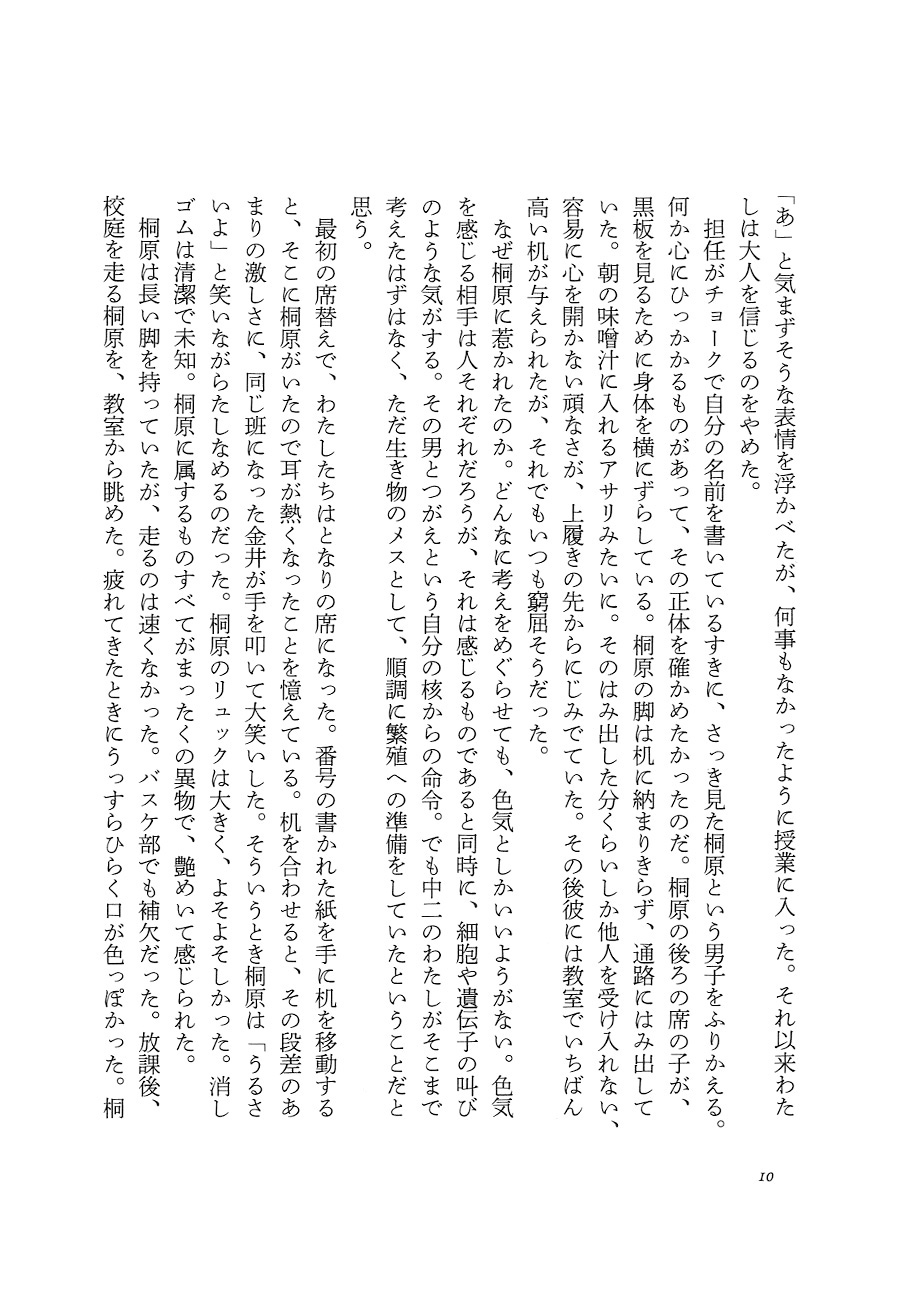 「あ」と気まずそうな表情を浮かべたが、何事もなかったように授業に入った。それ以来わた
しは大人を信じるのをやめた。
　担任がチョークで自分の名前を書いているすきに、さっき見た桐原という男子をふりかえる。
何か心にひっかかるものがあって、その正体を確かめたかったのだ。桐原の後ろの席の子が、
黒板を見るために身体を横にずらしている。桐原の脚は机に納まりきらず、通路にはみ出して
いた。朝の味噌汁に入れるアサリみたいに。そのはみ出した分くらいしか他人を受け入れない、
容易に心を開かない頑なさが、上履きの先からにじみでていた。その後彼には教室でいちばん
高い机が与えられたが、それでもいつも窮屈そうだった。
　なぜ桐原に惹かれたのか。どんなに考えをめぐらせても、色気としかいいようがない。色気
を感じる相手は人それぞれだろうが、それは感じるものであると同時に、細胞や遺伝子の叫び
のような気がする。その男とつがえという自分の核からの命令。でも中二のわたしがそこまで
考えたはずはなく、ただ生き物のメスとして、順調に繁殖への準備をしていたということだと
思う。
　最初の席替えで、わたしたちはとなりの席になった。番号の書かれた紙を手に机を移動する
と、そこに桐原がいたので耳が熱くなったことを憶えている。机を合わせると、その段差のあ
まりの激しさに、同じ班になった金井が手を叩いて大笑いした。そういうとき桐原は「うるさ
いよ」と笑いながらたしなめるのだった。桐原のリュックは大きく、よそよそしかった。消し
ゴムは清潔で未知。桐原に属するものすべてがまったくの異物で、艶めいて感じられた。
　桐原は長い脚を持っていたが、走るのは速くなかった。バスケ部でも補欠だった。放課後、
校庭を走る桐原を、教室から眺めた。疲れてきたときにうっすらひらく口が色っぽかった。桐
10